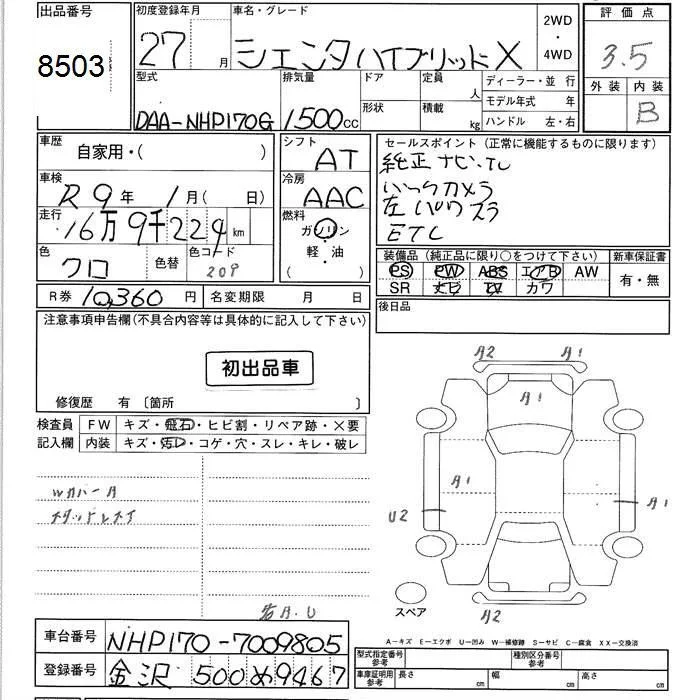 出品番号
8503
初度登録年月
27 月
車名・グレード
シエンタ ハイブリッド X
2WD
・
4WD
評価点
3.5
外装 内装
B
型式
DAA-NHP170G
排気量
1500cc
ドア
形状
定員
人
積載
kg
ディーラー・並行
モデル年式 年
ハンドル 左・右
車歴
自家用・( )
シフト
AT
セールスポイント(正常に機能するものに限ります)
純正ナビ・TV
バックカメラ
左パワスラ
ETC
車検
R9年 1月( 日)
冷房
AAC
走行
16万9千229km
燃料
ガソリン
軽・油
( )
色
クロ
色替
色コード
209
装備品(純正品に限り○をつけて下さい)
PS PW ABS エアB AW
SR ナビ TV カワ
新車保証書
有・無
R券 10,360円
名変期限 月 日
後日品
注意事項申告欄(不具合内容等は具体的に記入して下さい)
初出品車
修復歴 有 〔箇所 〕
検査員
記入欄
FW キズ・飛石・ヒビ割・リペア跡・×要
内装 キズ・汚レ・コゲ・穴・スレ・キレ・破レ
Wカバー A
A2
A1
A1
A1
U2
A1
A2
スペア
A-キズ E-エクボ U-凹み W-補修跡 S-サビ C-腐食 XX-交換済
車台番号
NHP170-7009805
登録番号
金沢 500 め 9467
型式指定番号
参考
種別区分番号
参考
車庫証明用
参考
長さ cm
幅 cm
高さ cm